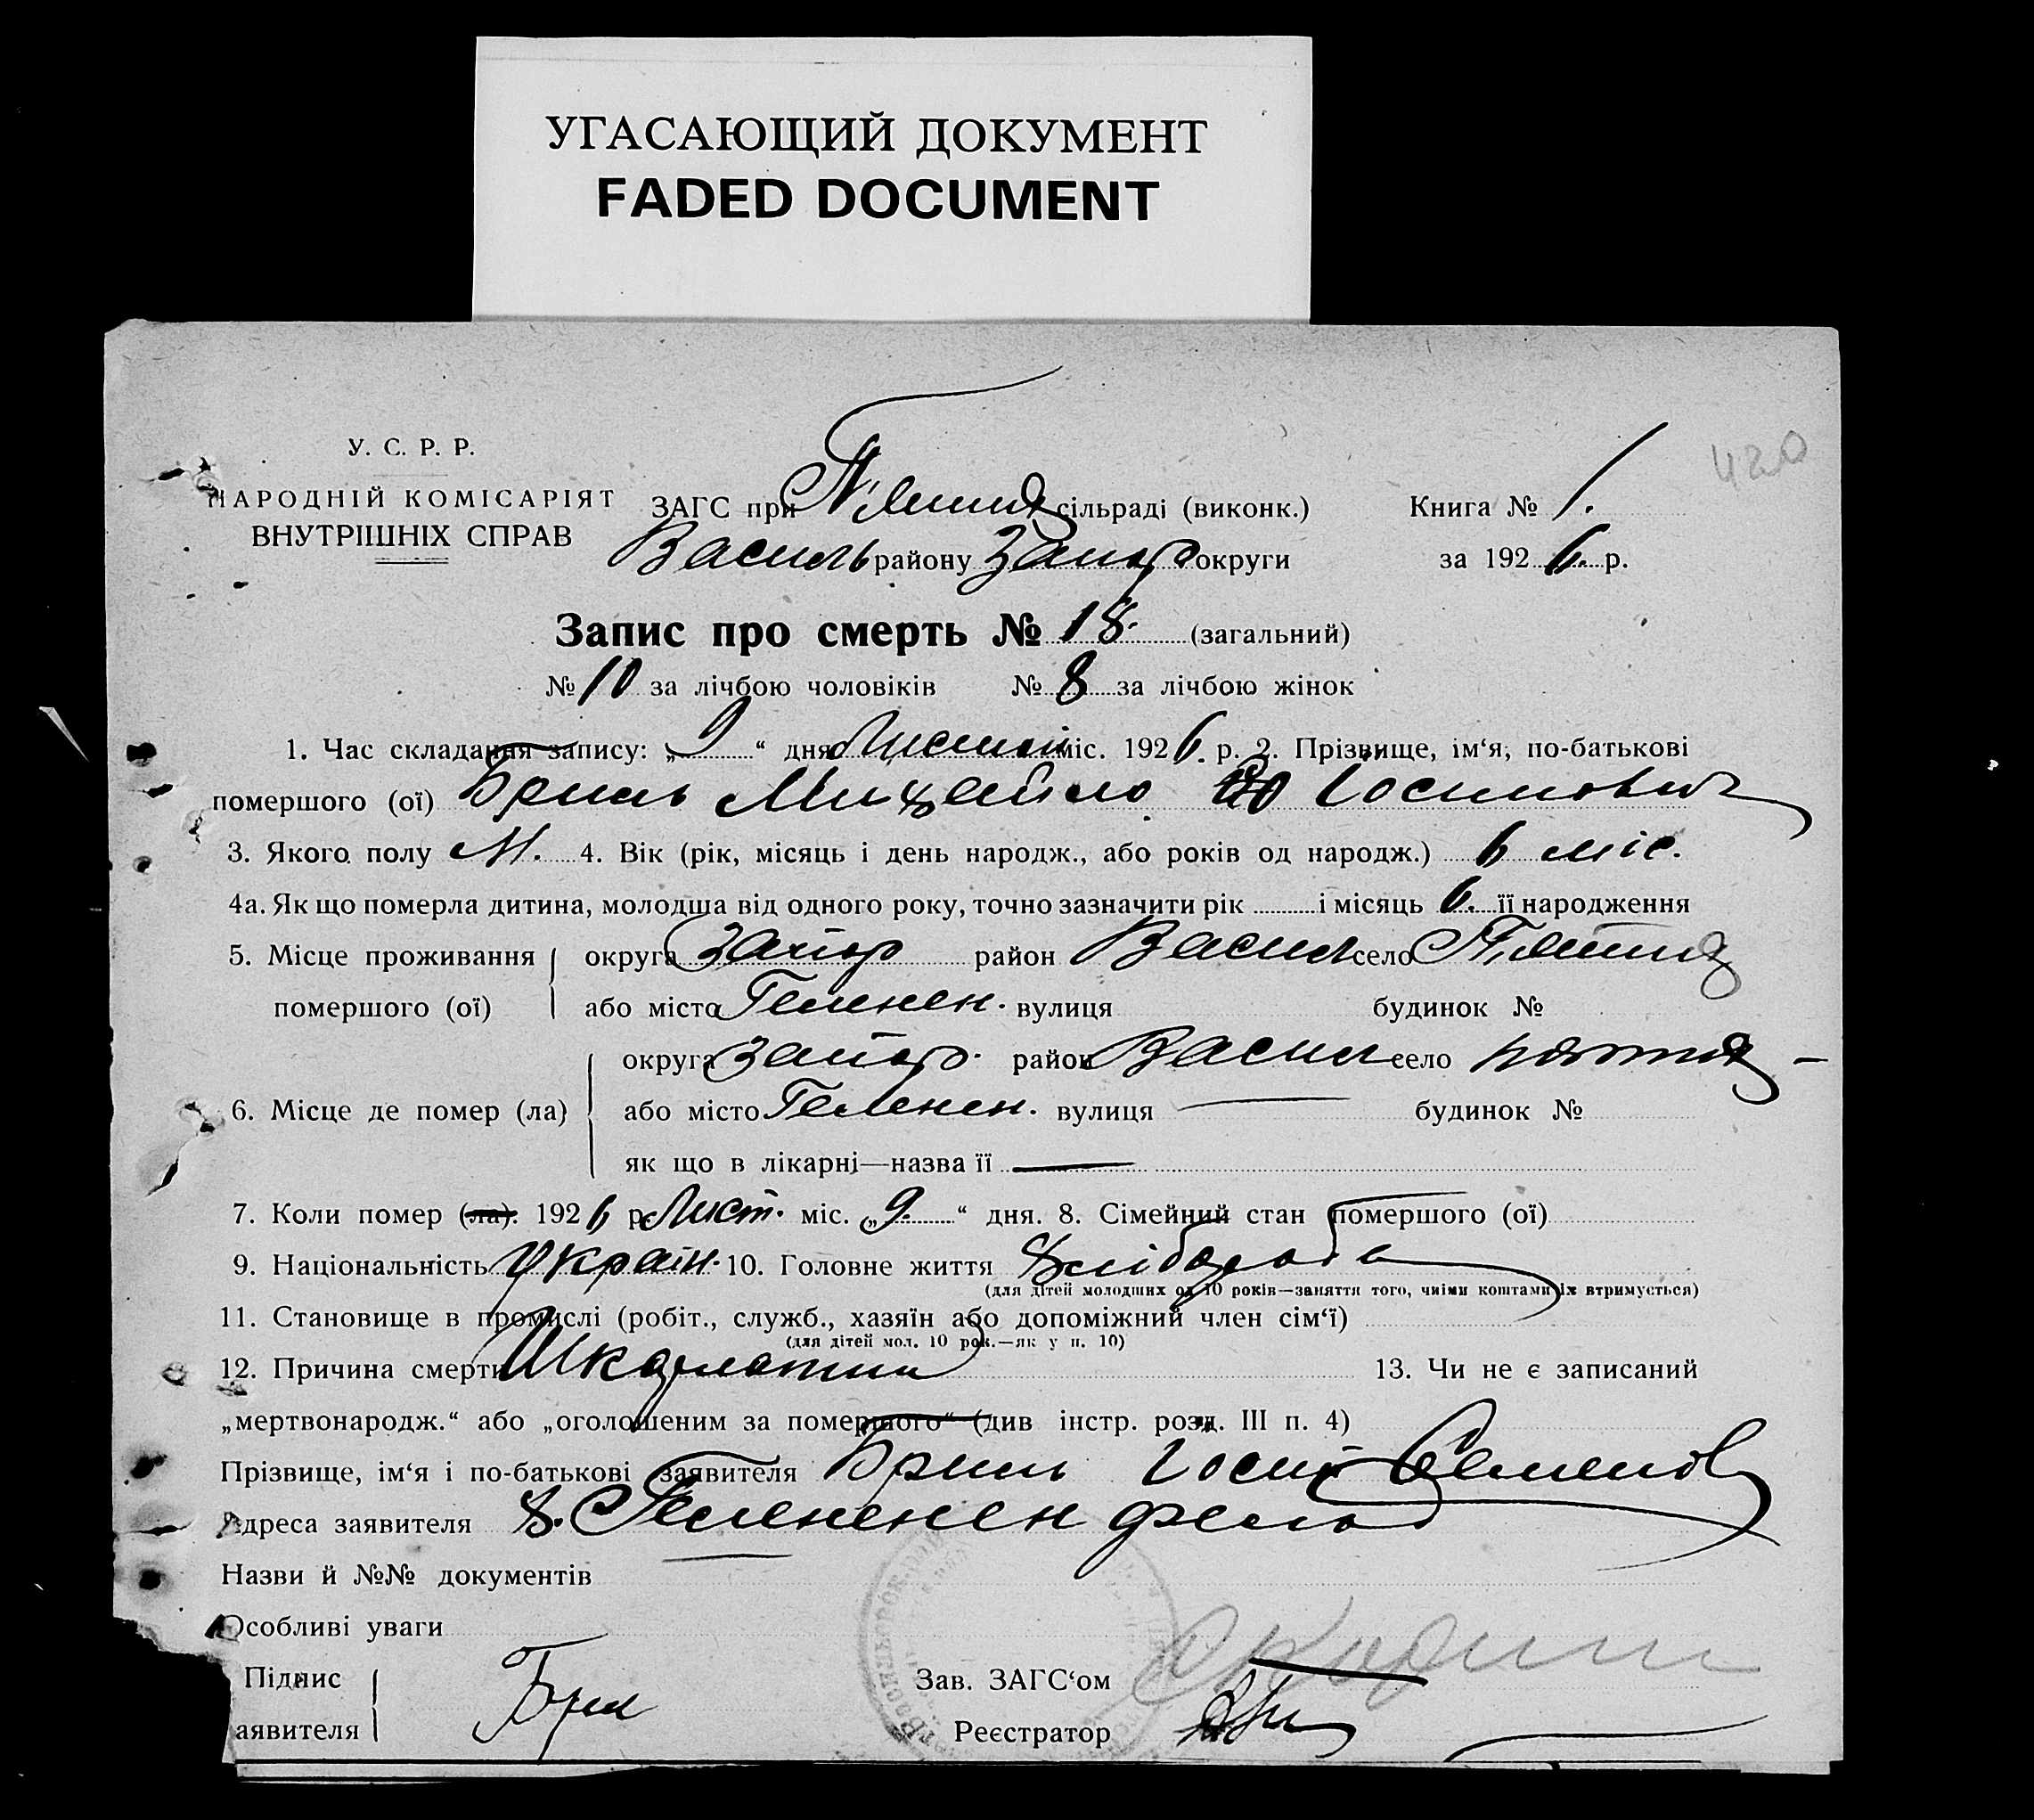 УГАСАЮЩИЙ ДОКУМЕНТ
FADED DOCUMENT
420
У. С. Р. Р.
НАРОДНІЙ КОМІСАРІЯТ
ВНУТРІШНІХ СПРАВ
ЗАГС при сільраді (виконк.)
Книга № 1.
Василь району Запор округи
за 1926. р.
Запис про смерть № 18. (загальний)
№ 10 за лічбою чоловіків № 8 за лічбою жінок
1. Час складання запису: „9“ дня міс. 1926. р. 2. Прізвище, ім‘я, по-батькові
помершого (ої) Бриль Михайло Йосипович
3. Якого полу М. 4. Вік (рік, місяць і день народж., або років од народж.) 6 міс.
4а. Як що померла дитина, молодша від одного року, точно зазначити рік і місяць 6. її народження
5. Місце проживання помершого (ої) округа Запор район Васил село
або місто вулиця будинок №
6. Місце де помер (ла) округа Запор. район Васил село
або місто вулиця — будинок №
як що в лікарні—назва її —
7. Коли помер (ла). 1926 р. Лист. міс. „9.“ дня. 8. Сімейний стан помершого (ої)
9. Національність Україн. 10. Головне життя Хлібороб
(для дітей молодших од 10 років—заняття того, чиїми коштами їх втримується)
11. Становище в промислі (робіт., служб., хазяїн або допоміжний член сім‘ї)
(для дітей мол. 10 рок.—як у п. 10)
12. Причина смерти Шкарлатина 13. Чи не є записаний
„мертвонародж.“ або „оголошеним за помершого“ (див інстр. розд. III п. 4)
Прізвище, ім‘я і по-батькові заявителя Бриль Йосип Семенов
Адреса заявителя х. фельд
Назви й №№ документів
Особливі уваги
Підпис
аявителя
Зав. ЗАГС‘ом
Реєстратор